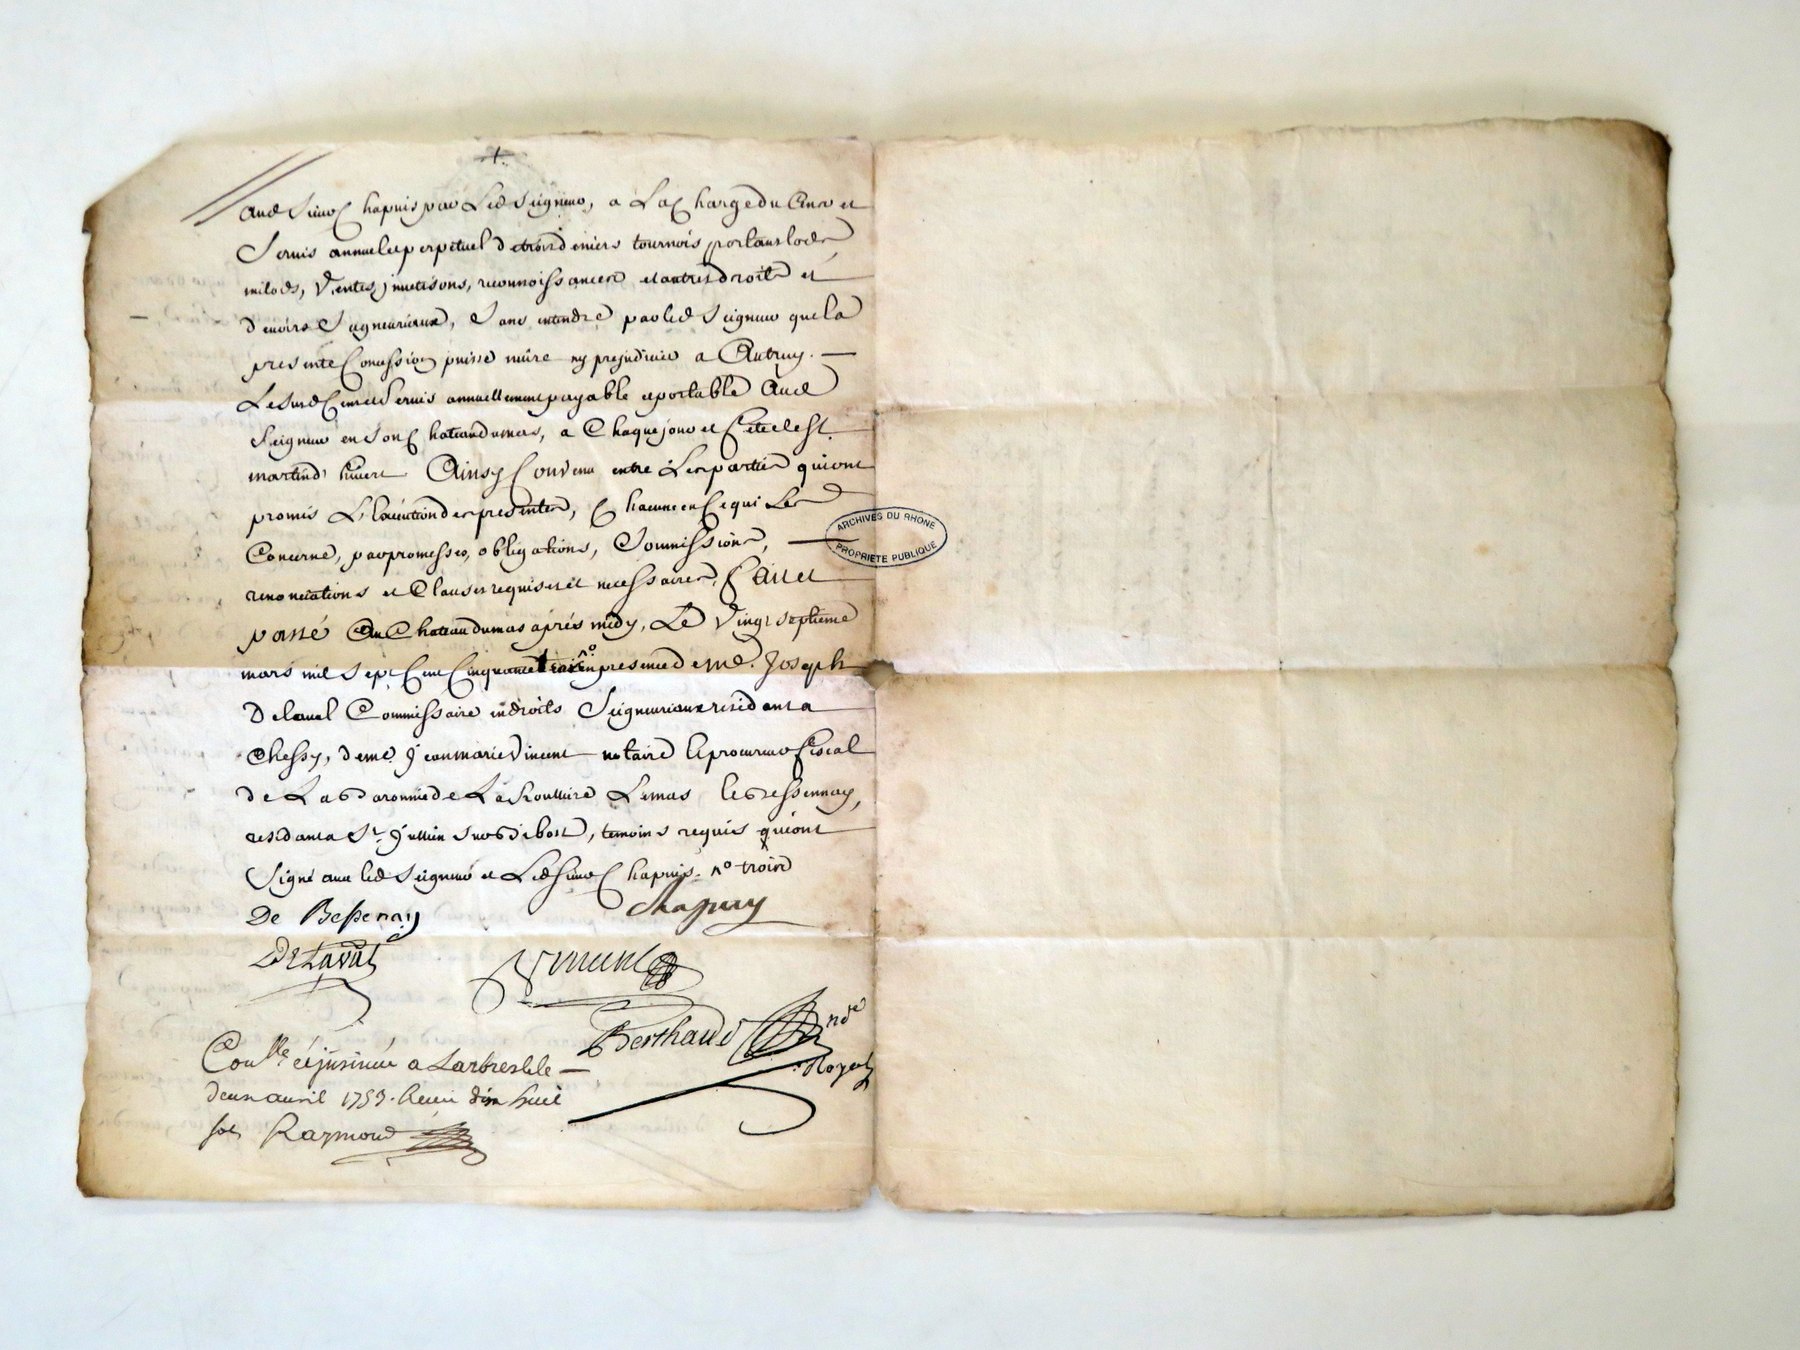 aud Sieur Chapuis par Led Seigneur, a La Charge du Cens et
Servis annuel et perpetuel de trois deniers tournois portant lods
milods, Ventes, investisons, reconnoissances et autres droits et
devoirs Seigneuriaux, Sans entendre par led Seigneur que la
presente Concession puisse nuire ny prejudicier a Autruy. —
Le Susd Cens et Servis annuellement payable et portable Aud
Seigneur en Son Chateau du mas, a Chaque jour et fete de St
martin d'hiver Ainsy Convenu entre Les parties qui ont
promis L'Execution des presentes, Chacune en Ce qui Les
Concerne, par promesses, obligations, Soumissions, —
renonciations et Clauses requises et necessaires, fait et
passé Au Chateau du mas aprés midy, Le Vingt septieme
mars mil Sept Cent Cinquante trois en presence de me. Joseph
Delaval Commissaire en droits Seigneuriaux resident a
Chessy, de me Jean marie Vincent notaire et procureur fiscal
de La Baronnie de La Lemas
resident a St Jullien Sur Bibost, temoins requis qui ont
Signé avec led Seigneur et Led Sieur Chapuis. no trois
De Bessenay
Chapuy
DeLaval
Vincent
Berthaud nre
Royal
Con.lle et insinué a Larbresle le —
deux avril 1753. Recu dix huit
sols Raymond
ARCHIVES DU RHONE
PROPRIETE PUBLIQUE